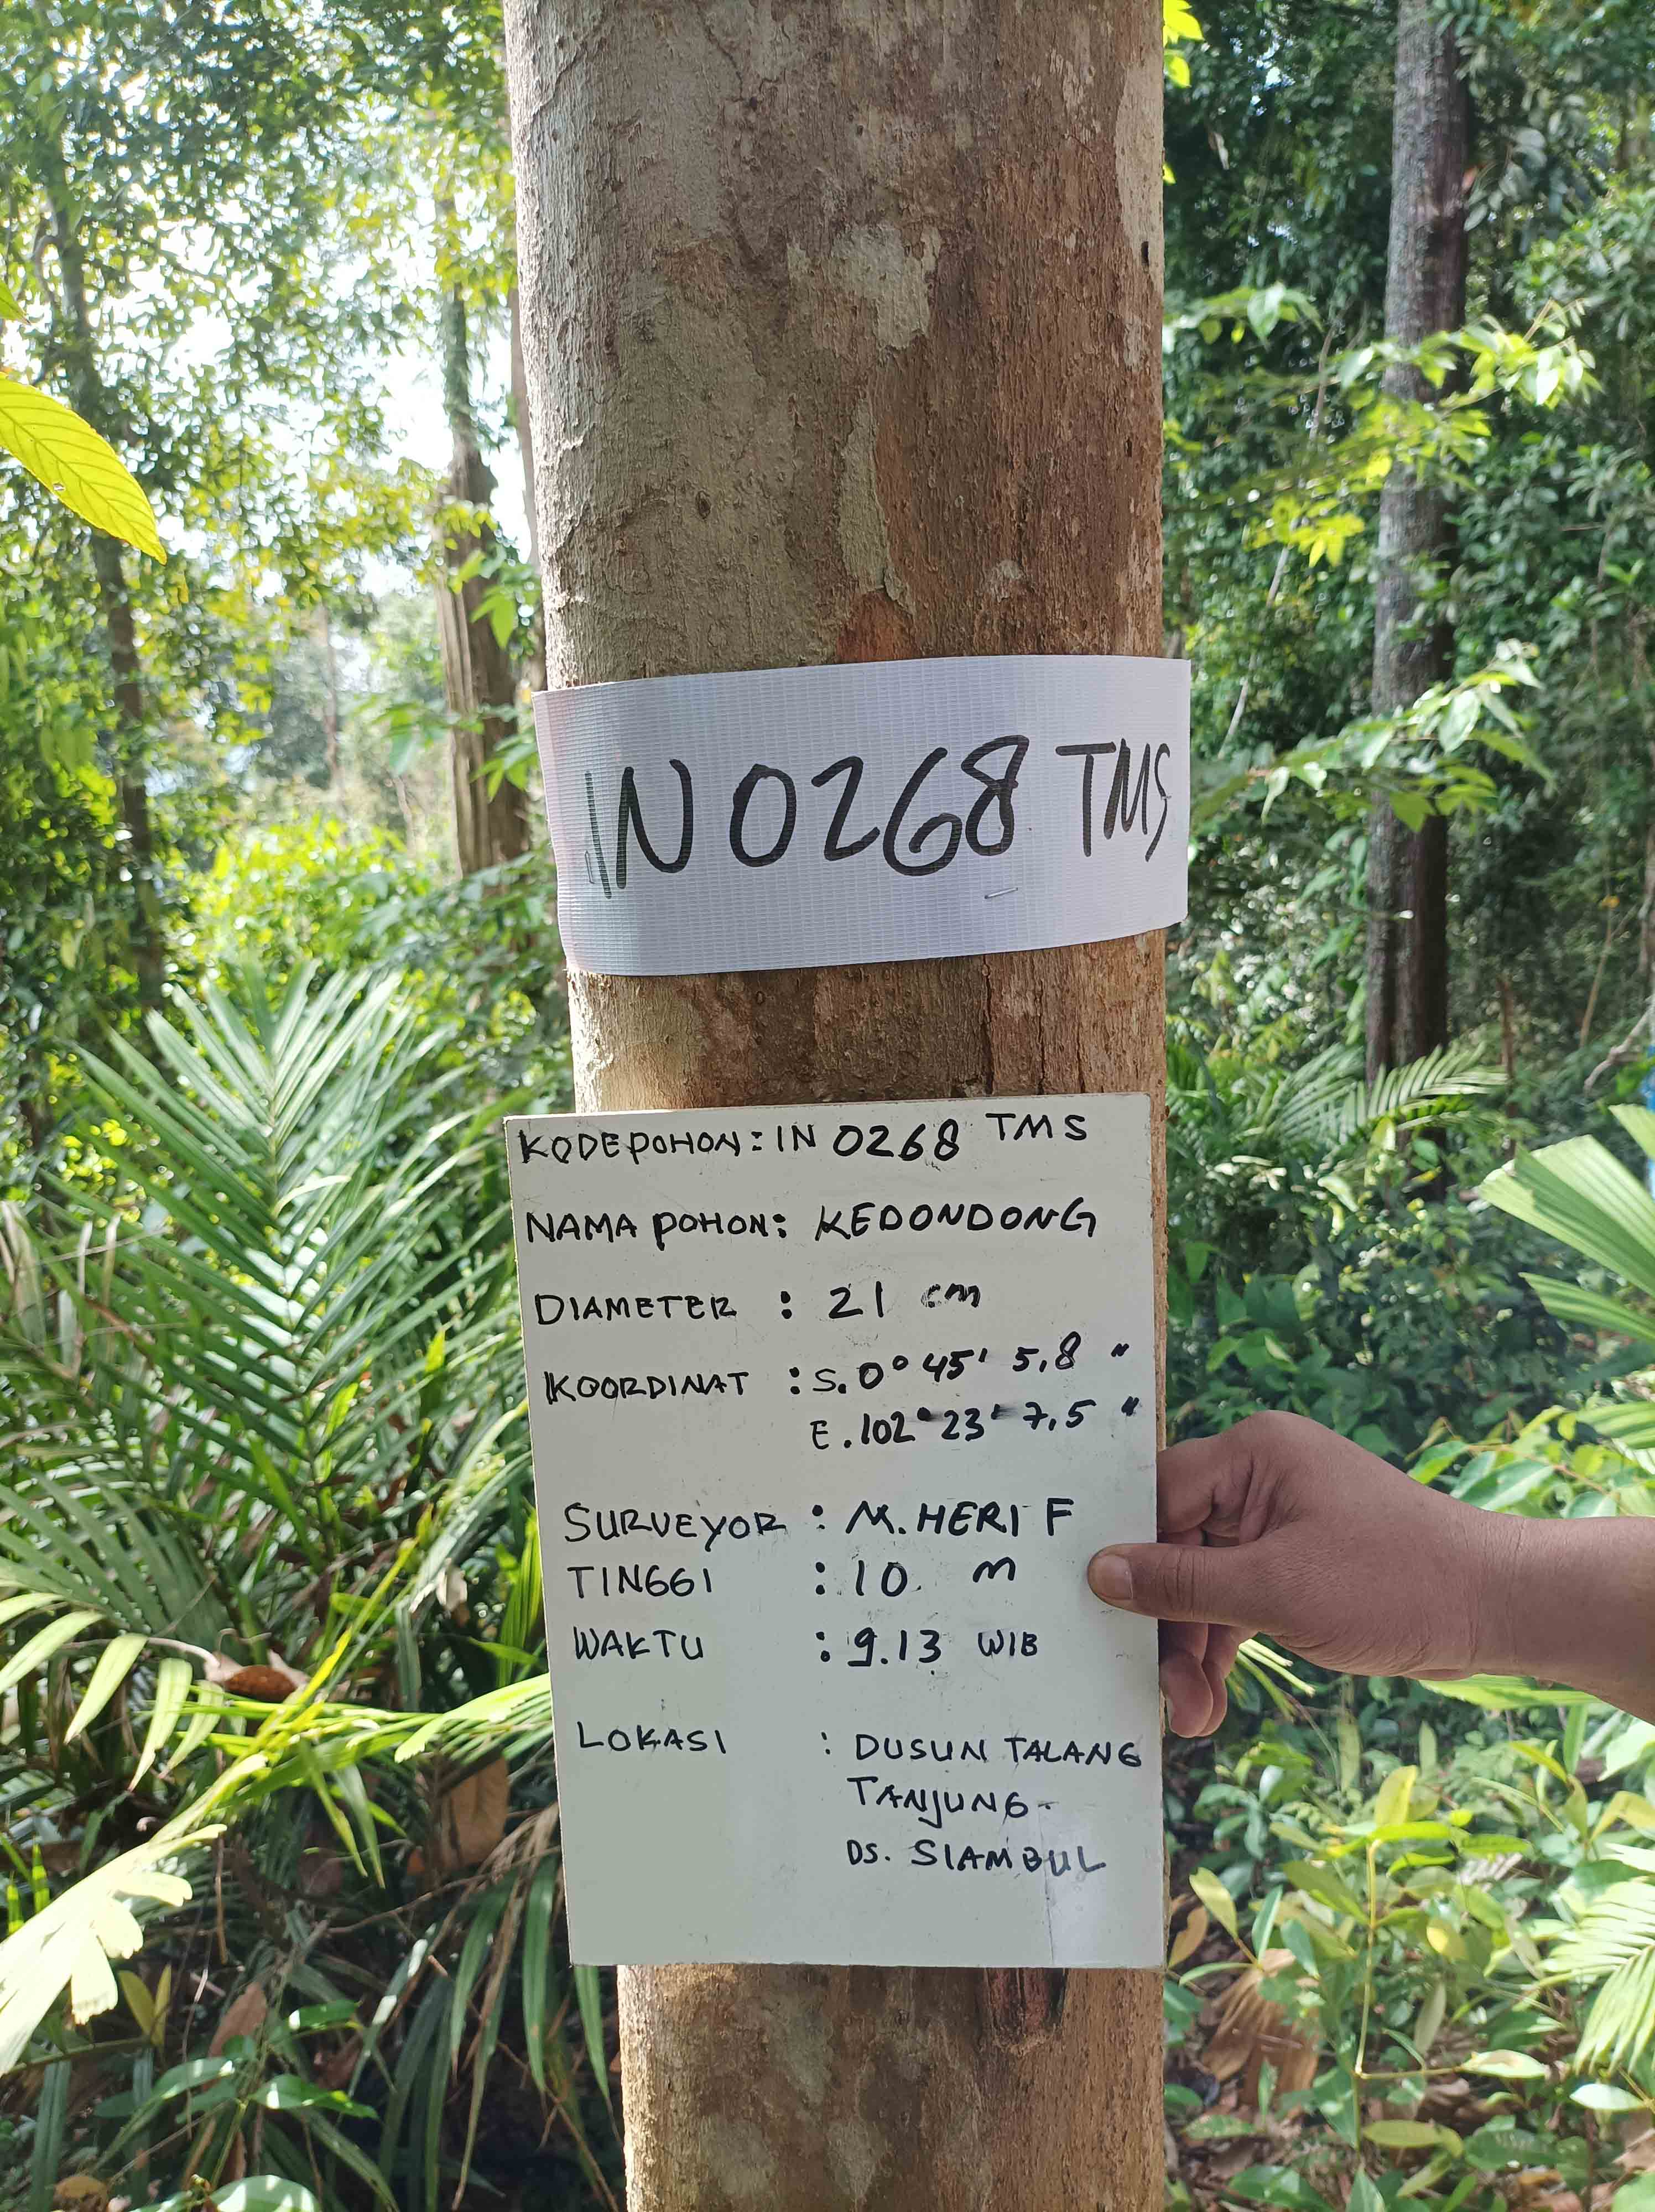 IN 0268 TMS
KODE POHON : IN 0268 TMS
NAMA POHON : KEDONDONG
DIAMETER : 21 cm
KOORDINAT : S. 0° 45' 5,8 "
E. 102° 23' 7,5 "
SURVEYOR : M. HERI F
TINGGI : 10 m
WAKTU : 9.13 WIB
LOKASI : DUSUN TALANG
TANJUNG
DS. SIAMBUL